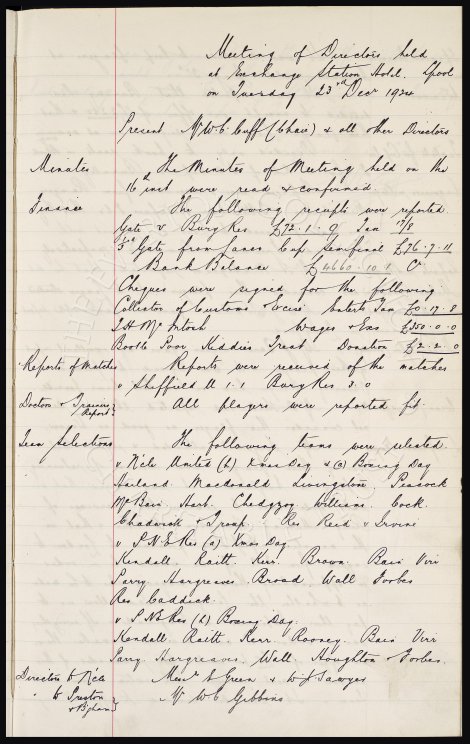 Meeting of Directors held
at Exchange Station Hotel. Lpool
on Tuesday 23rd Decr 1924
Present Mr W.C. Cuff (Chair) & all other Directors
Minutes The Minutes of Meeting held on the
16th inst were read & confirmed.
Finance The following receipts were reported
Gate v Bury Res £72.1.9 Tax 17/8
1/3rd Gate from Lancs Cup semifinal £76.7.11
Bank Balance £4660.10.1 Cr
Cheques were signed for the following
Collector of Customs & Excise Enterts Tax £0.17.8
T.H. McIntosh Wages & Exs £350.0.0
Bootle Poor Kiddies Treat Donation £2.2.0
Reports of Matches Reports were received of the matches
v Sheffield U 1.1 Bury Res 3.0
Doctors & Trainers Report All players were reported fit.
Team Selections The following teams were selected
v N'cle United (h) Xmas Day & (a) Boxing Day
Harland Macdonald Livingston Peacock
McBain Hart. Chedgzoy Williams Cock.
Chadwick & Troup. Res Reid v Irvine
v P.N.E Res (a) Xmas Day
Kendall Raitt. Kerr. Brown. Bain Virr
Parry Hargreaves Broad Wall Forbes
Res Caddick.
v P.N.E Res (h) Boxing Day.
Kendall Raitt. Kerr. Rooney. Bain Virr
Parry. Hargreaves. Wall Houghton & Forbes.
Directors to N'cle Messrs A Green & W J Sawyer
" to Preston & B'gham Mr W C Gibbins